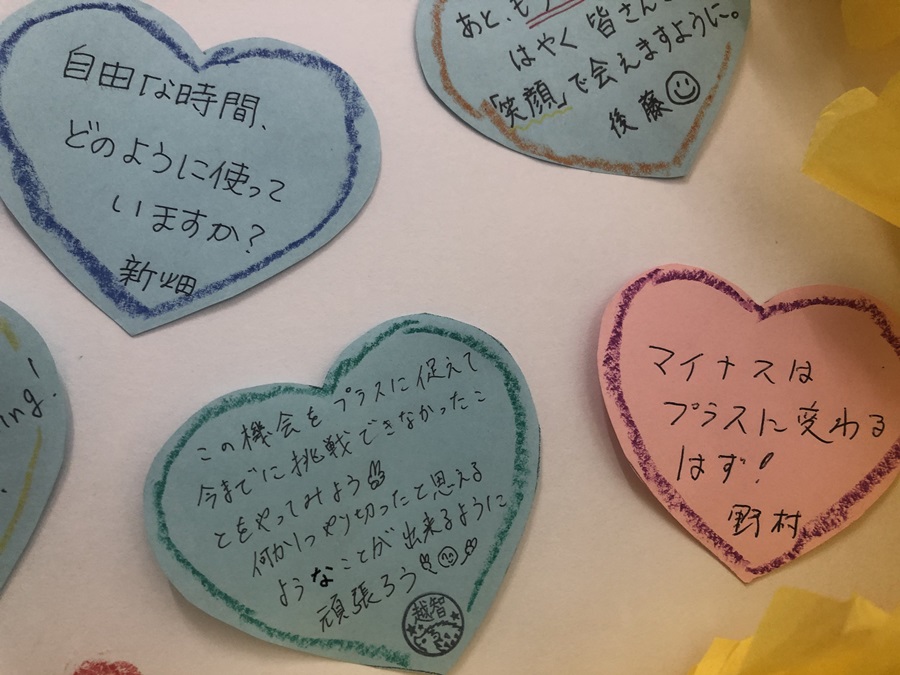 自由な時間、
どのように使って
いますか?
新畑
あと、
はやく皆さん
「笑顔」で会えますように。
後藤
ing.
この機会をプラスに捉えて
今までに挑戦できなかったこ
とをやってみよう
何か1つやり切ったと思える
ようなことが出来るように
頑張ろう
越智
マイナスは
プラスに変わる
はず!
野村